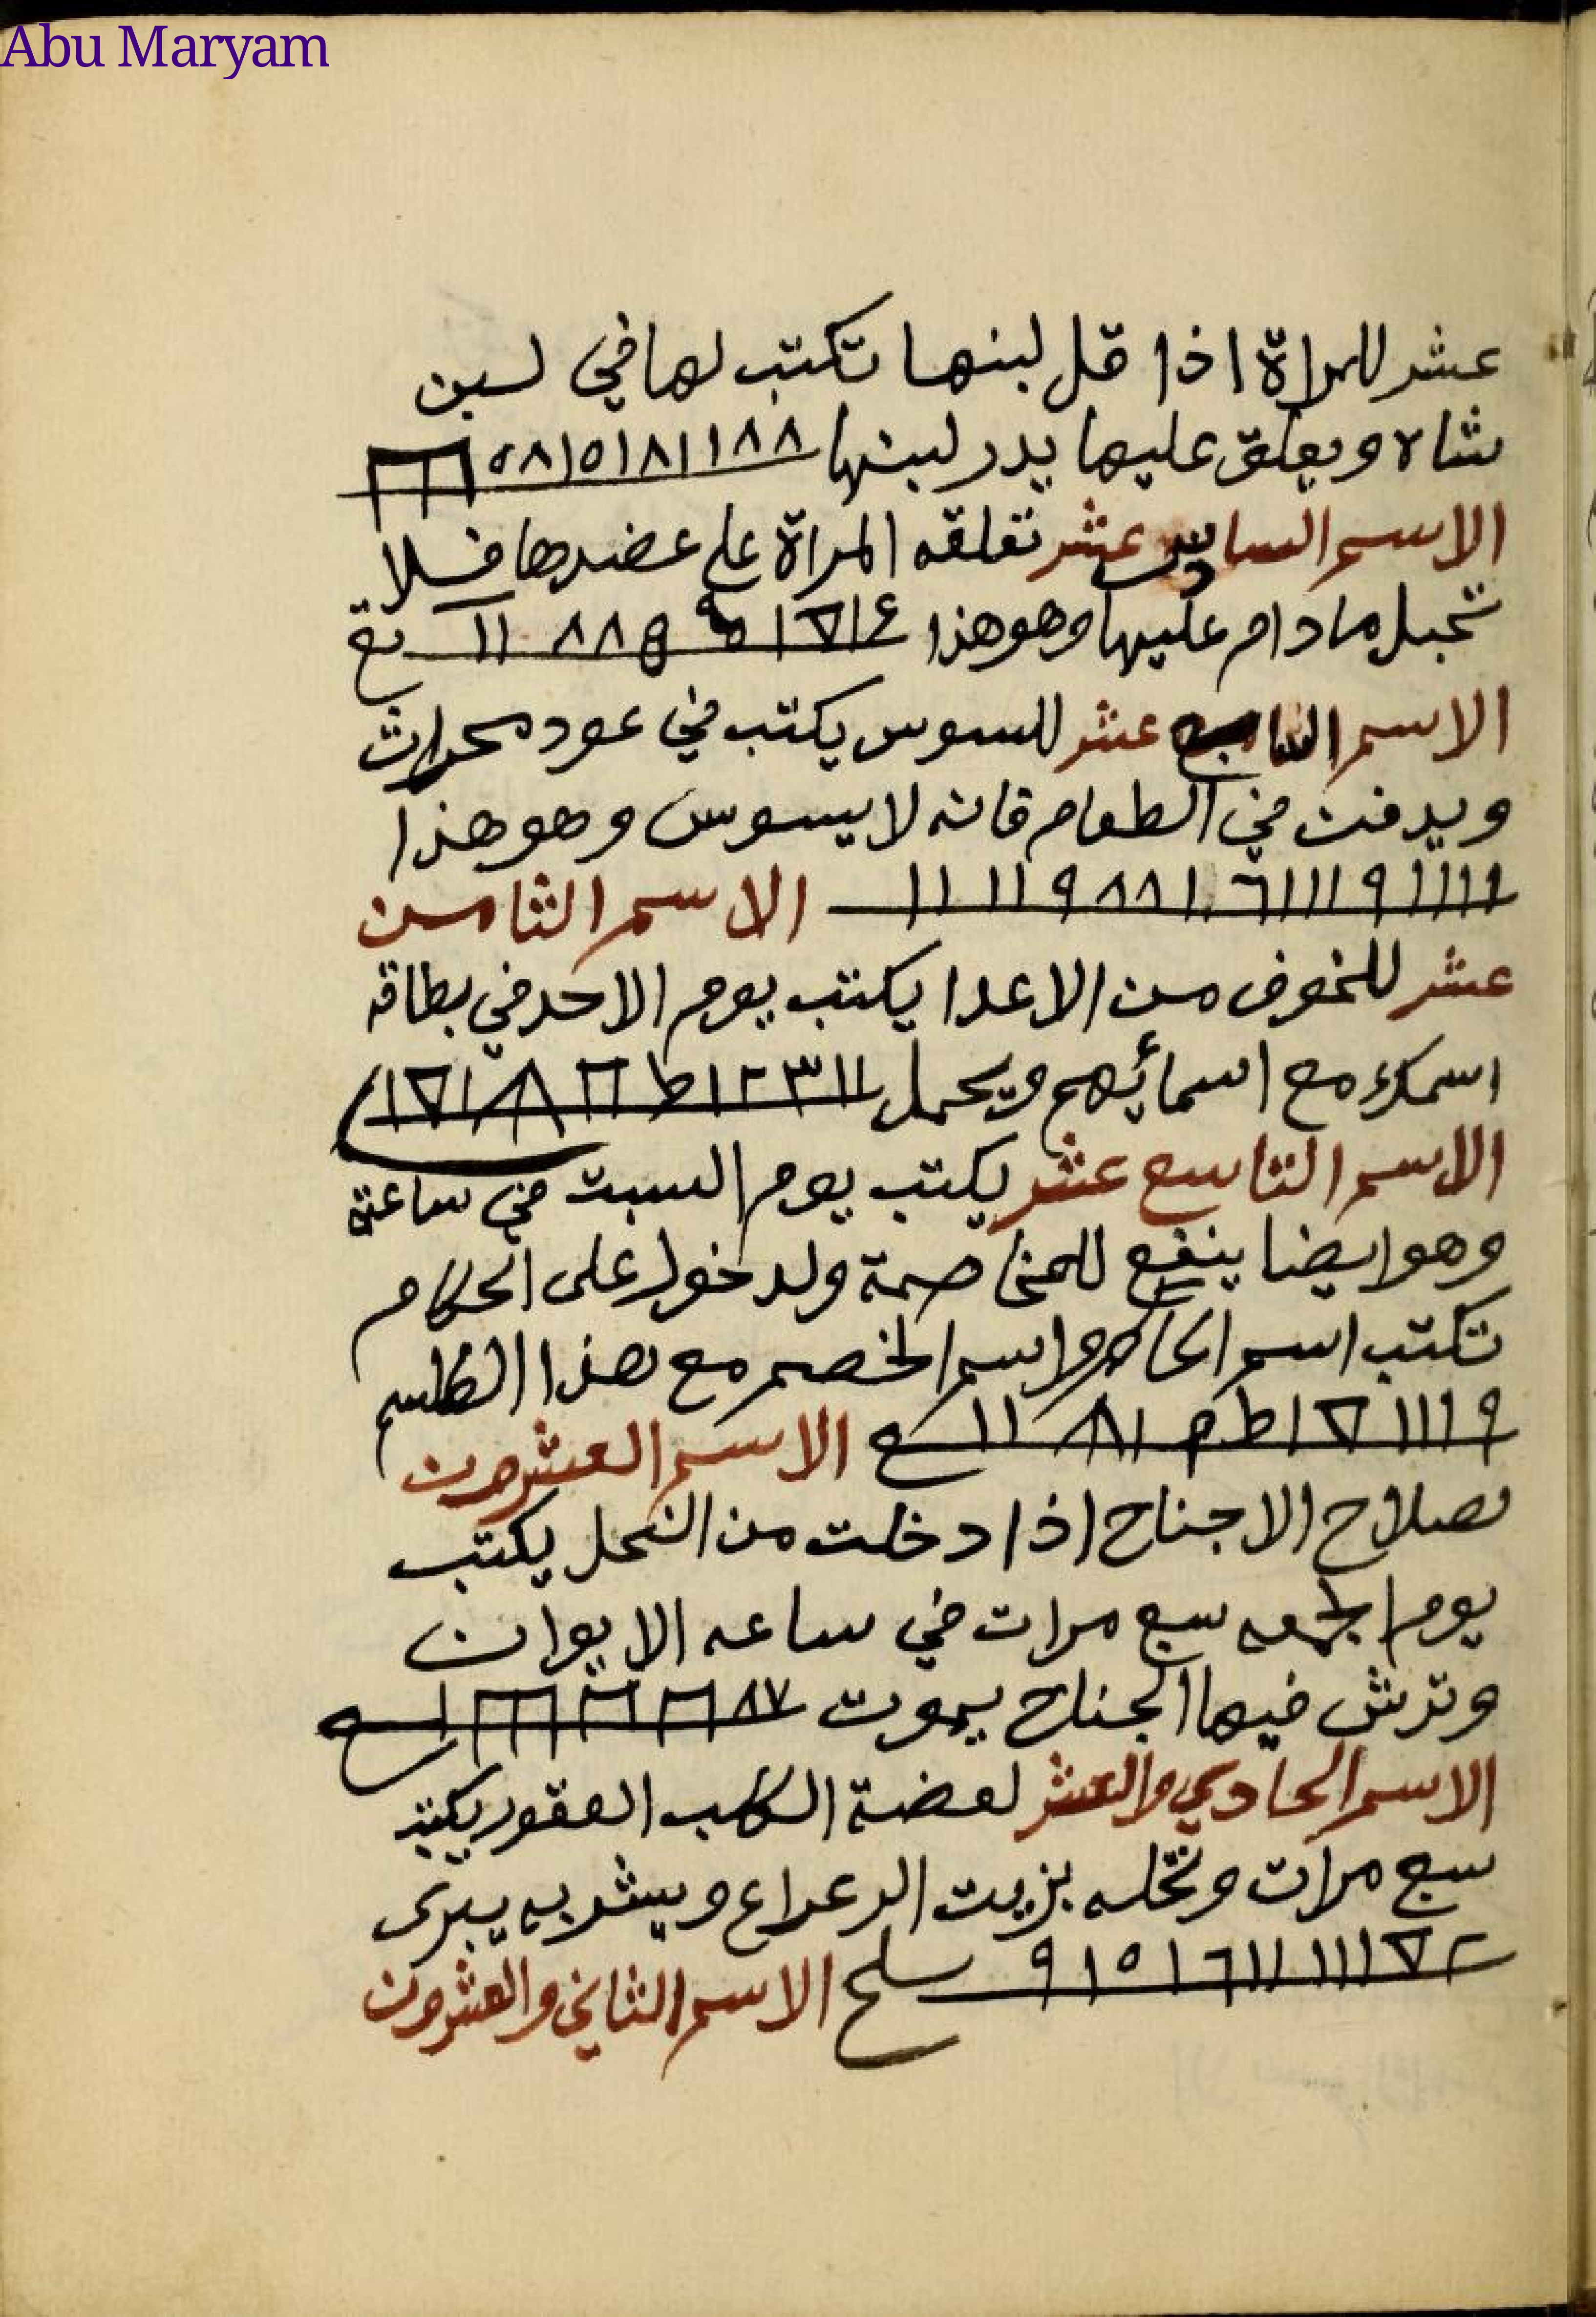 Abu Maryam
عشر للمراة اذا قل لبنها تكتب لها في لبن
شاه ويعلق عليها يدر لبنها ٨٨١١٨١٥١٨٥
الاسم السادس عشر تعلقه المراة على عضدها فلا
تحبل مادام عليها وهو هذا
الاسم السابع عشر للسوس يكتب في عود محراث
ويدفن في الطعام فانه لا يسوس وهو هذا
١١١١٩١١١٦١٨٨٩١١١١ الاسم الثامن
عشر للخوف من الاعدا يكتب يوم الاحد في بطاقه
اسمك مع اسمائهم ويحمل
الاسم التاسع عشر يكتب يوم السبت في ساعته
وهو ايضا ينفع للمخاصمة ولدخول على الحكام
تكتب اسم الحاكم واسم الخصم مع هذا الطلسم
الاسم العشرون
لصلاح الاجناح اذا دخلت من النحل يكتب
يوم الجمعه سبع مرات في ساعه الايوان
وترش فيها الجناح يموت
الاسم الحادي والعشر لعضة الكلب العقور يكتب
سبع مرات وتحله بزيت الرعراع ويشربه يبرى
الاسم الثاني والعشرون